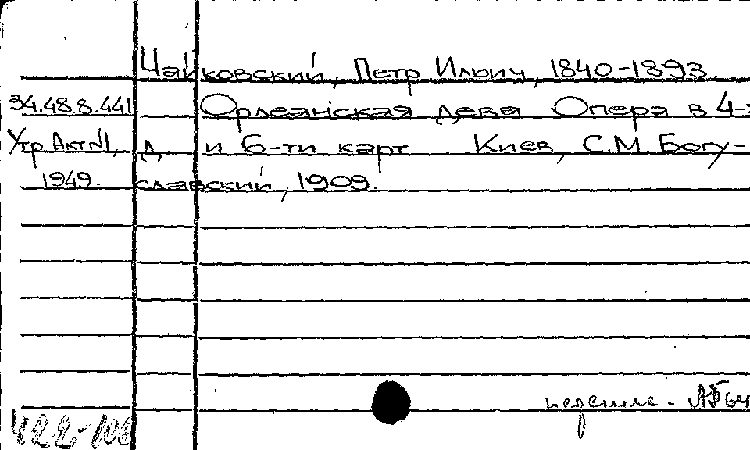 Чайковский, Петр Ильич, 1840-1893
34.48.8.441 Орлеанская дева Опера в 4-х
Утр. Акт №1, д. и 6-ти карт Киев, С.М. Богу-
1949. славский, 1909.